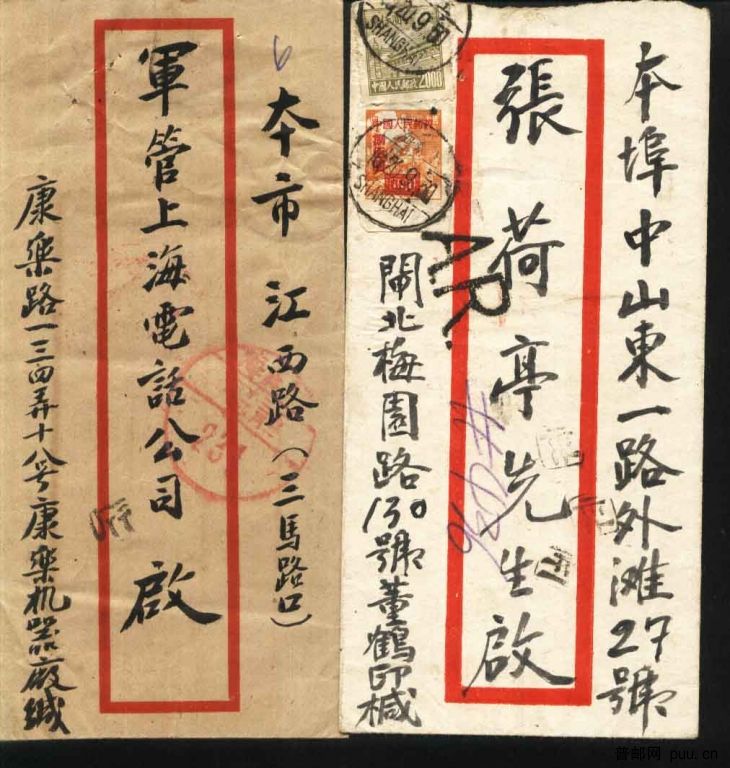 本埠中山東一路外滩27號
張荷亭先生啟
閘北梅園路130號董鶴印槭
A.R.
SHANGHAI
中國人民郵政
2000
中國人民郵政
SHANGHAI
本市江西路(三馬路口)
軍管上海電話公司啟
康樂路一三四弄十八号康樂机器廠緘
6
普邮网 puu.cn